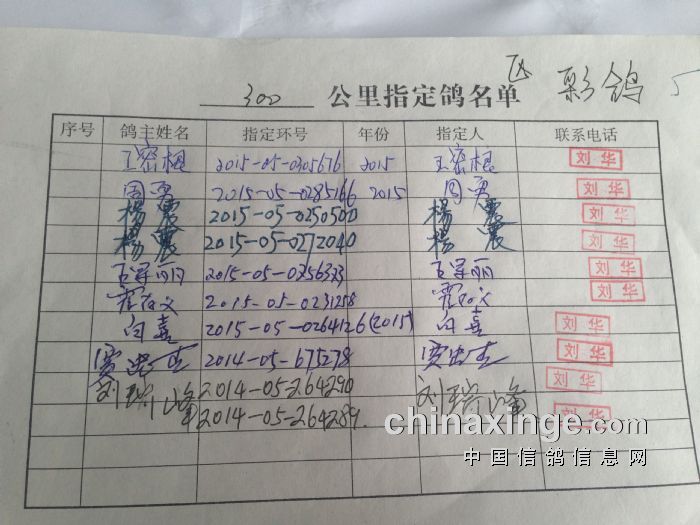 300 公里指定鸽名单 彩鸽
序号 鸽主姓名 指定环号 年份 指定人 联系电话
王密根 2015-05-0305676 2015 王密根 刘华
周勇 2015-05-0285166 2015 周勇 刘华
楊震 2015-05-0250500 楊震 刘华
楊震 2015-05-0272040 楊震 刘华
2015-05-0256323 刘华
2015-05-0231258 刘华
向喜 2015-05-0264126(2015) 向喜 刘华
贾忠 2014-05-675278 贾忠 刘华
刘瑞峰 2014-05-264290 刘瑞峰 刘华
2014-05-264289. 刘华
chinaxinge.com
中国信鸽信息网